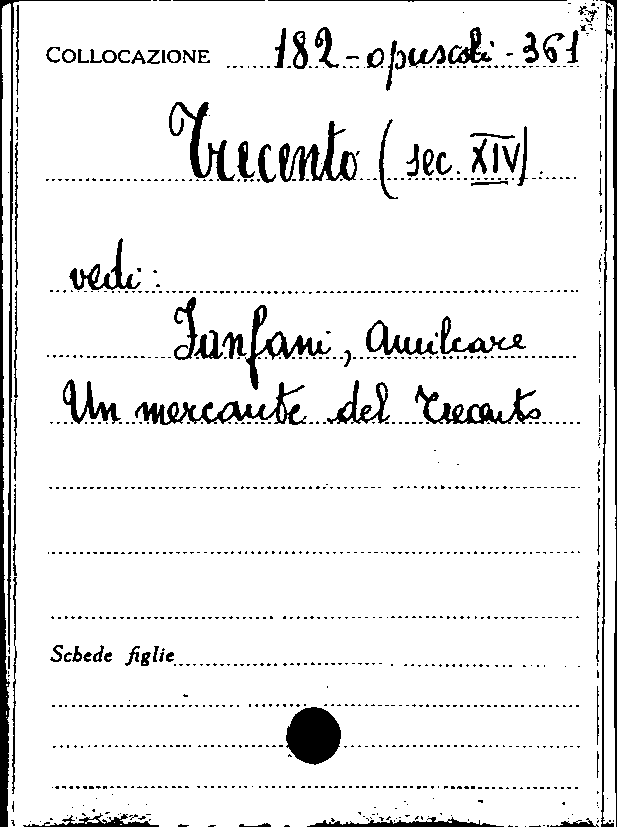 COLLOCAZIONE 182-opuscoli-361
Trecento (sec. XIV)
vedi:
Fanfani, Amilcare
Un mercante del Trecento
Schede figlie